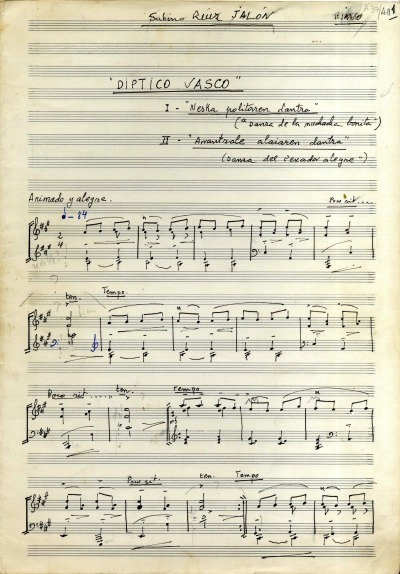 Sabino Ruiz JALÓN PIANO
"DIPTICO VASCO"
I - "Neska politaren dantza"
("Danza de la muchacha bonita")
II - "Arrantzale alaiaren dantza"
(Danza del pescador alegre")
Animado y alegre. Poco rit....
= 84
2
4
ten. Tempo
Poco rit.... ten. Tempo
Poco rit. ten. Tempo